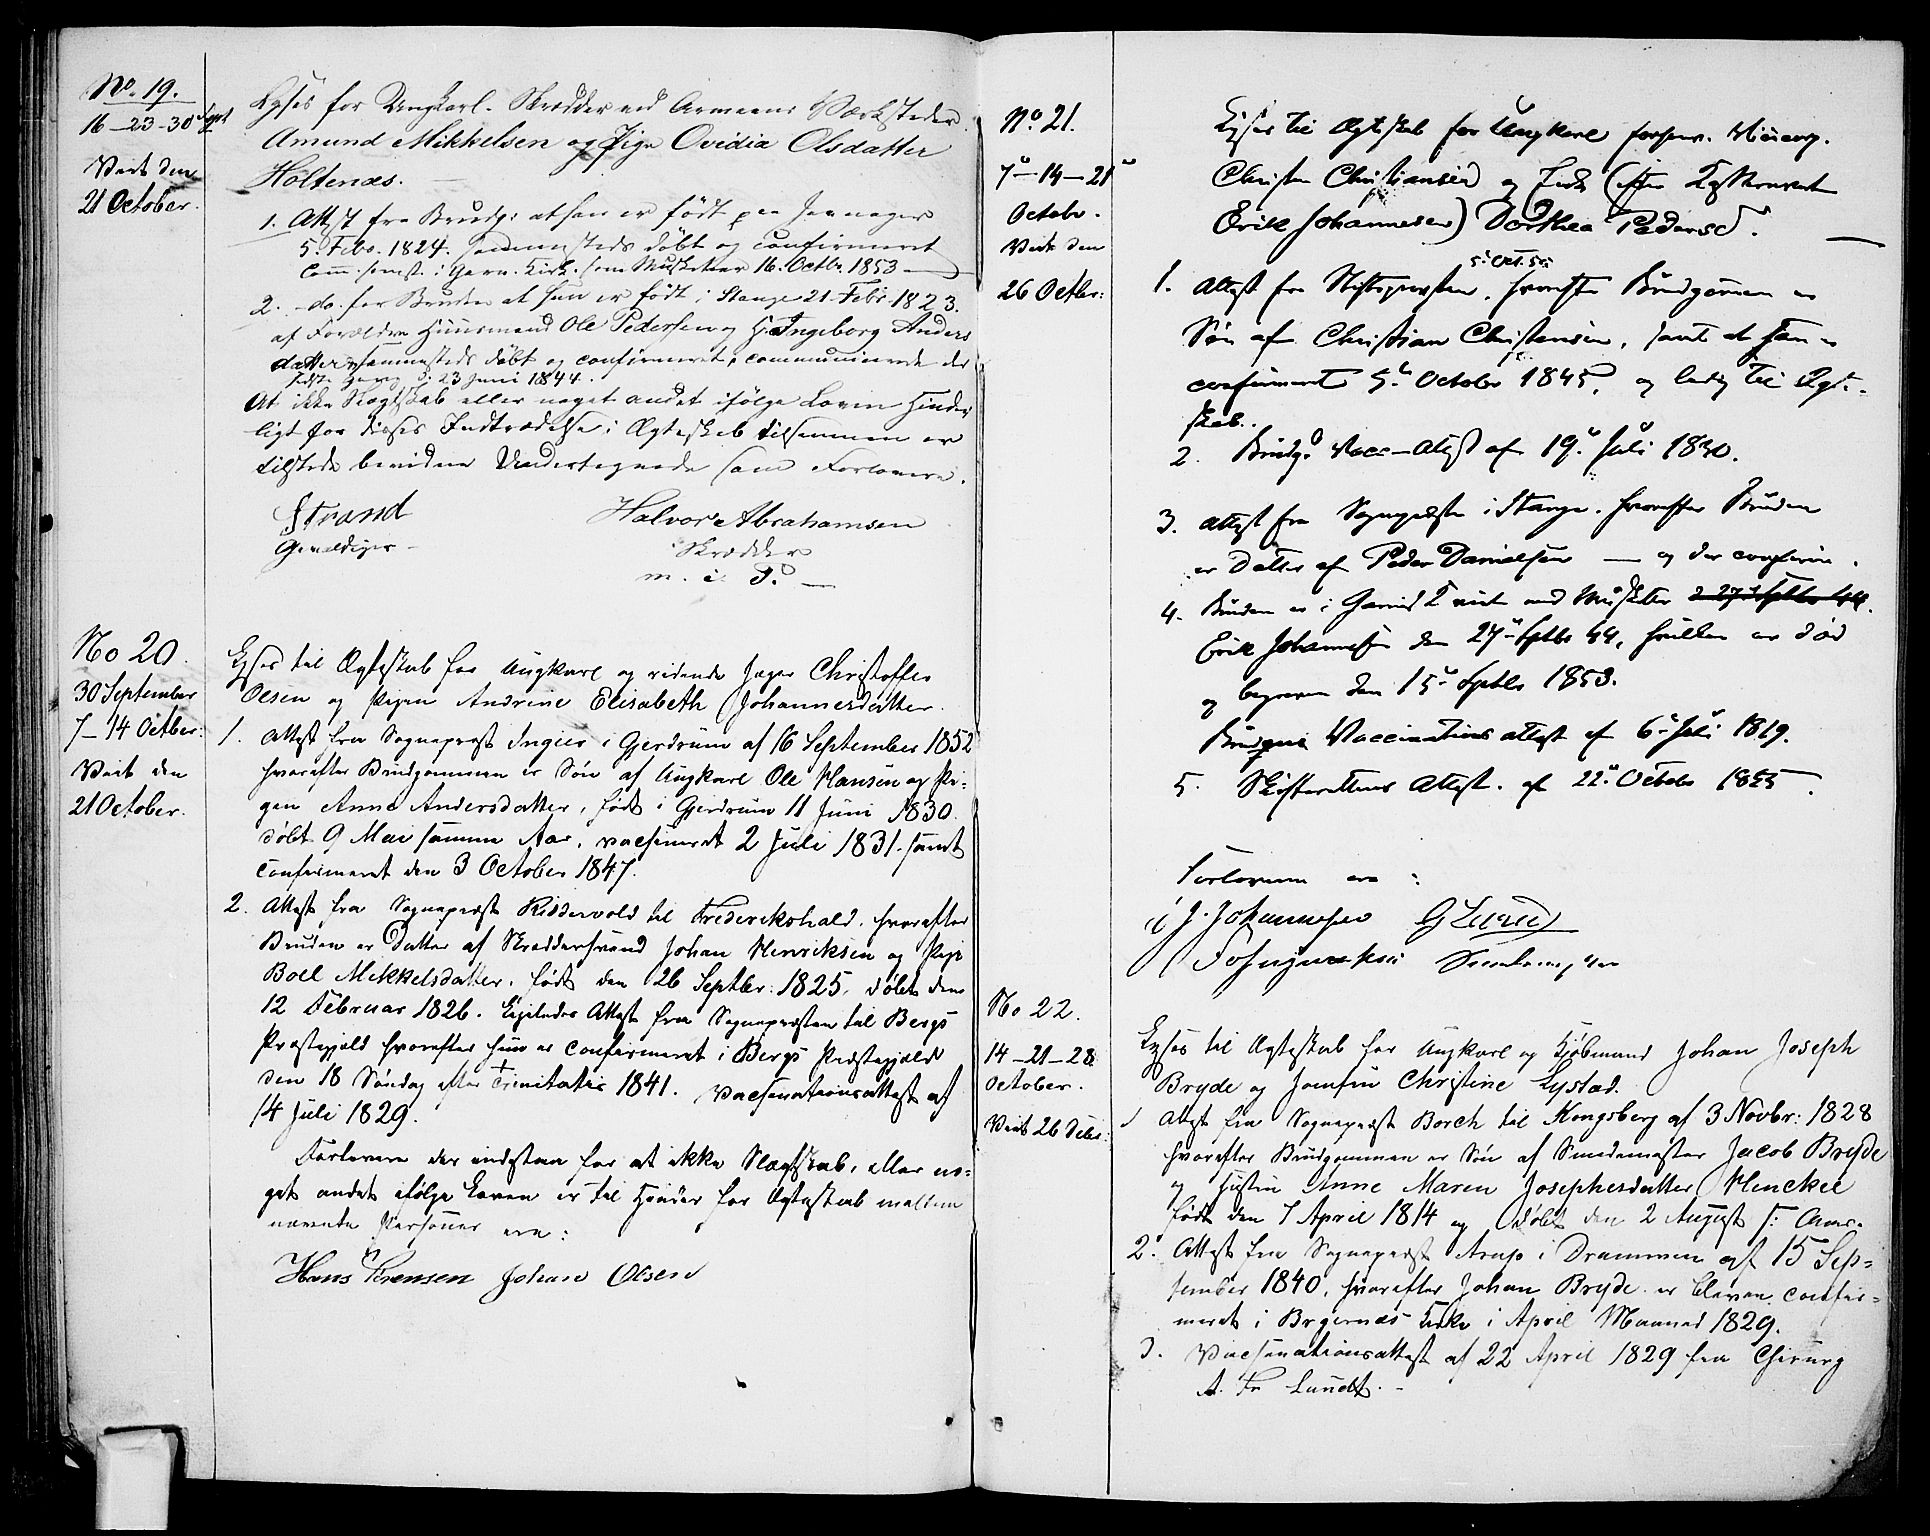 No. 19.
16-23-30 Sept
Viet den
21 October.
Lyses for Ungkarl. Skrædder ved Armeens Værksteder
Amund Mikkelsen og Pige Ovidia Olsdatter
Holtenæs.
1. Attest fra Brudg: at han er født paa
5. Febr. 1824. sammesteds døbt og confirmeret
Comm. senest i Garn. Kirk. som Musketeer 16. Octbr 1853
2. do. for Bruden at hun er født i Stange 21 Febr. 1823.
af Forældre Huusmand Ole Pedersen og H. Ingeborg Anders
datter sammesteds døbt og confirmeret, communicerede der
sidste Gang d: 23 Juni 1844.
At ikke Slægtskab eller noget andet ifølge Loven Hinder
ligt for disses Indtrædelse i Ægteskab tilsammen er
tilstede bevidne Undertegnede som Forlovere.
Strand
Gevaldiger
Halvor Abrahamsen
Skrædder
m. i. P.
No 20.
30 September
7-14 October:
Viet den
21 October.
Lyses til Ægteskab for Ungkarl og ridende Jæger Christoffer
Olsen og Pigen Andrine Elisabeth Johannesdatter.
1. Attest fra Sognepræst Ingier i Gjerdrum af 16 September 1852
hvorefter Brudgommen er Søn af Ungkarl Ole Hansen og Pi-
gen Anne Andersdatter, født i Gjerdrum 11 Juni 1830.
døbt 9 Mai samme Aar, vacsineret 2 Juli 1831. samt
confirmeret den 3 October 1847.
2. Attest fra Sognepræst Riddervold til Frederikshald, hvorefter
Bruden er Datter af Skræddersvend Johan Henriksen og Pige
Boel Mikkelsdatter, født den 26 Septbr: 1825, døbt den
12 Februar 1826. Ligeledes Attest fra Sognepræsten til Bergs
Præstegjeld hvorefter hun er confirmeret i Bergs Præstegjeld
den 18 Søndag efter Trinitatis 1841. Vacsinationsattest af
14 Juli 1829.
Forlovere der indestaa for at ikke Slægtskab, eller no-
get andet ifølge Loven er til Hinder for Ægteskab mellem
nævnte Personer ere:
Hans Sørensen Johan Olsen
No. 21.
7-14-21
Octobr.
Viet den
26 Octbr:
Lyses til Ægteskab for Ungkarl forhenv.
Christen Christiansen og Enke (efter
Erik Johannesen) Dorthea Pedersd.
1. Attest fra Stiftsprovsten, 5 Oct. 55 hvorefter Brudgommen er
Søn af Christian Christensen, samt at han er
confirmeret 5 October 1845, og ledig til Ægte-
skab.
2. Brudg. Vacc-Attest af 19 Juli 1830.
3. Attest fra Sognepræsten i Stange, hvorefter Bruden
er Datter af Peder Danielsen — og der confirm.
4. Bruden er i Garnis. K. viet med Musketer d 27 Septbr 44.
Erik Johannesen den 27 Septbr 44, hvilken er død
og begraven den 15 Septbr 1853.
Vaccinations attest af 6 Juli 1819.
5. Skifterettens Attest. af 22 Octobr 1855.
Forloverne ere:
J. Johannesen G Lund
No 22.
14-21-28
October.
Viet 26 Decbr:
Lyses til Ægteskab for Ungkarl og Kjøbmand Johan Joseph
Bryde og Jomfru Christine Lystad.
1 Attest fra Sognepræst Borch til Kongsberg af 3 Novbr: 1828
hvorefter Brudgommen er Søn af Smedemester Jacob Bryde
og Hustru Anne Maren Josephesdatter Henckel
født den 7 April 1814 og døbt den 2 August s: Aar.
2. Attest fra Sognepræst Arup i Drammen af 15 Sep-
tember 1840, hvorefter Johan Bryde er bleven confir-
meret i Bragernæs Kirke i April Maaned 1829.
3. Vacsinationsattest af 22 April 1829 fra Chirurg
A. Fr Lundt.